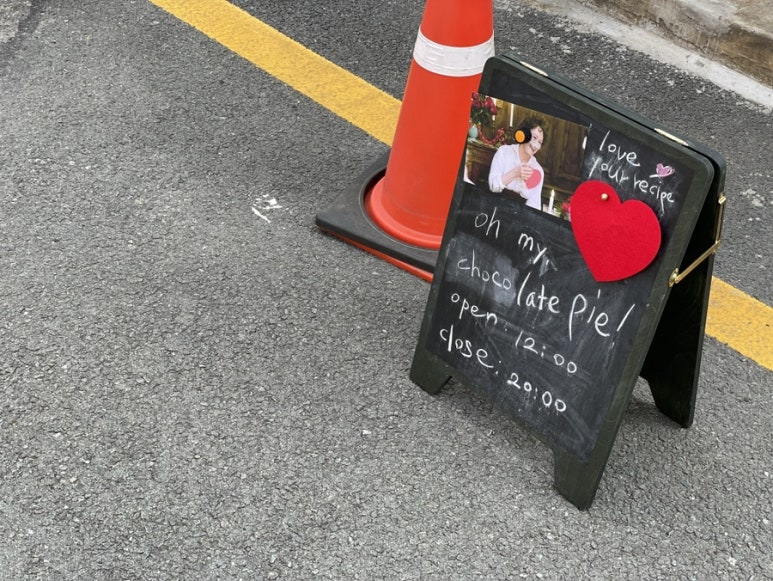 love
your recipe
oh my,
chocolate pie!
open: 12:00
close: 20:00